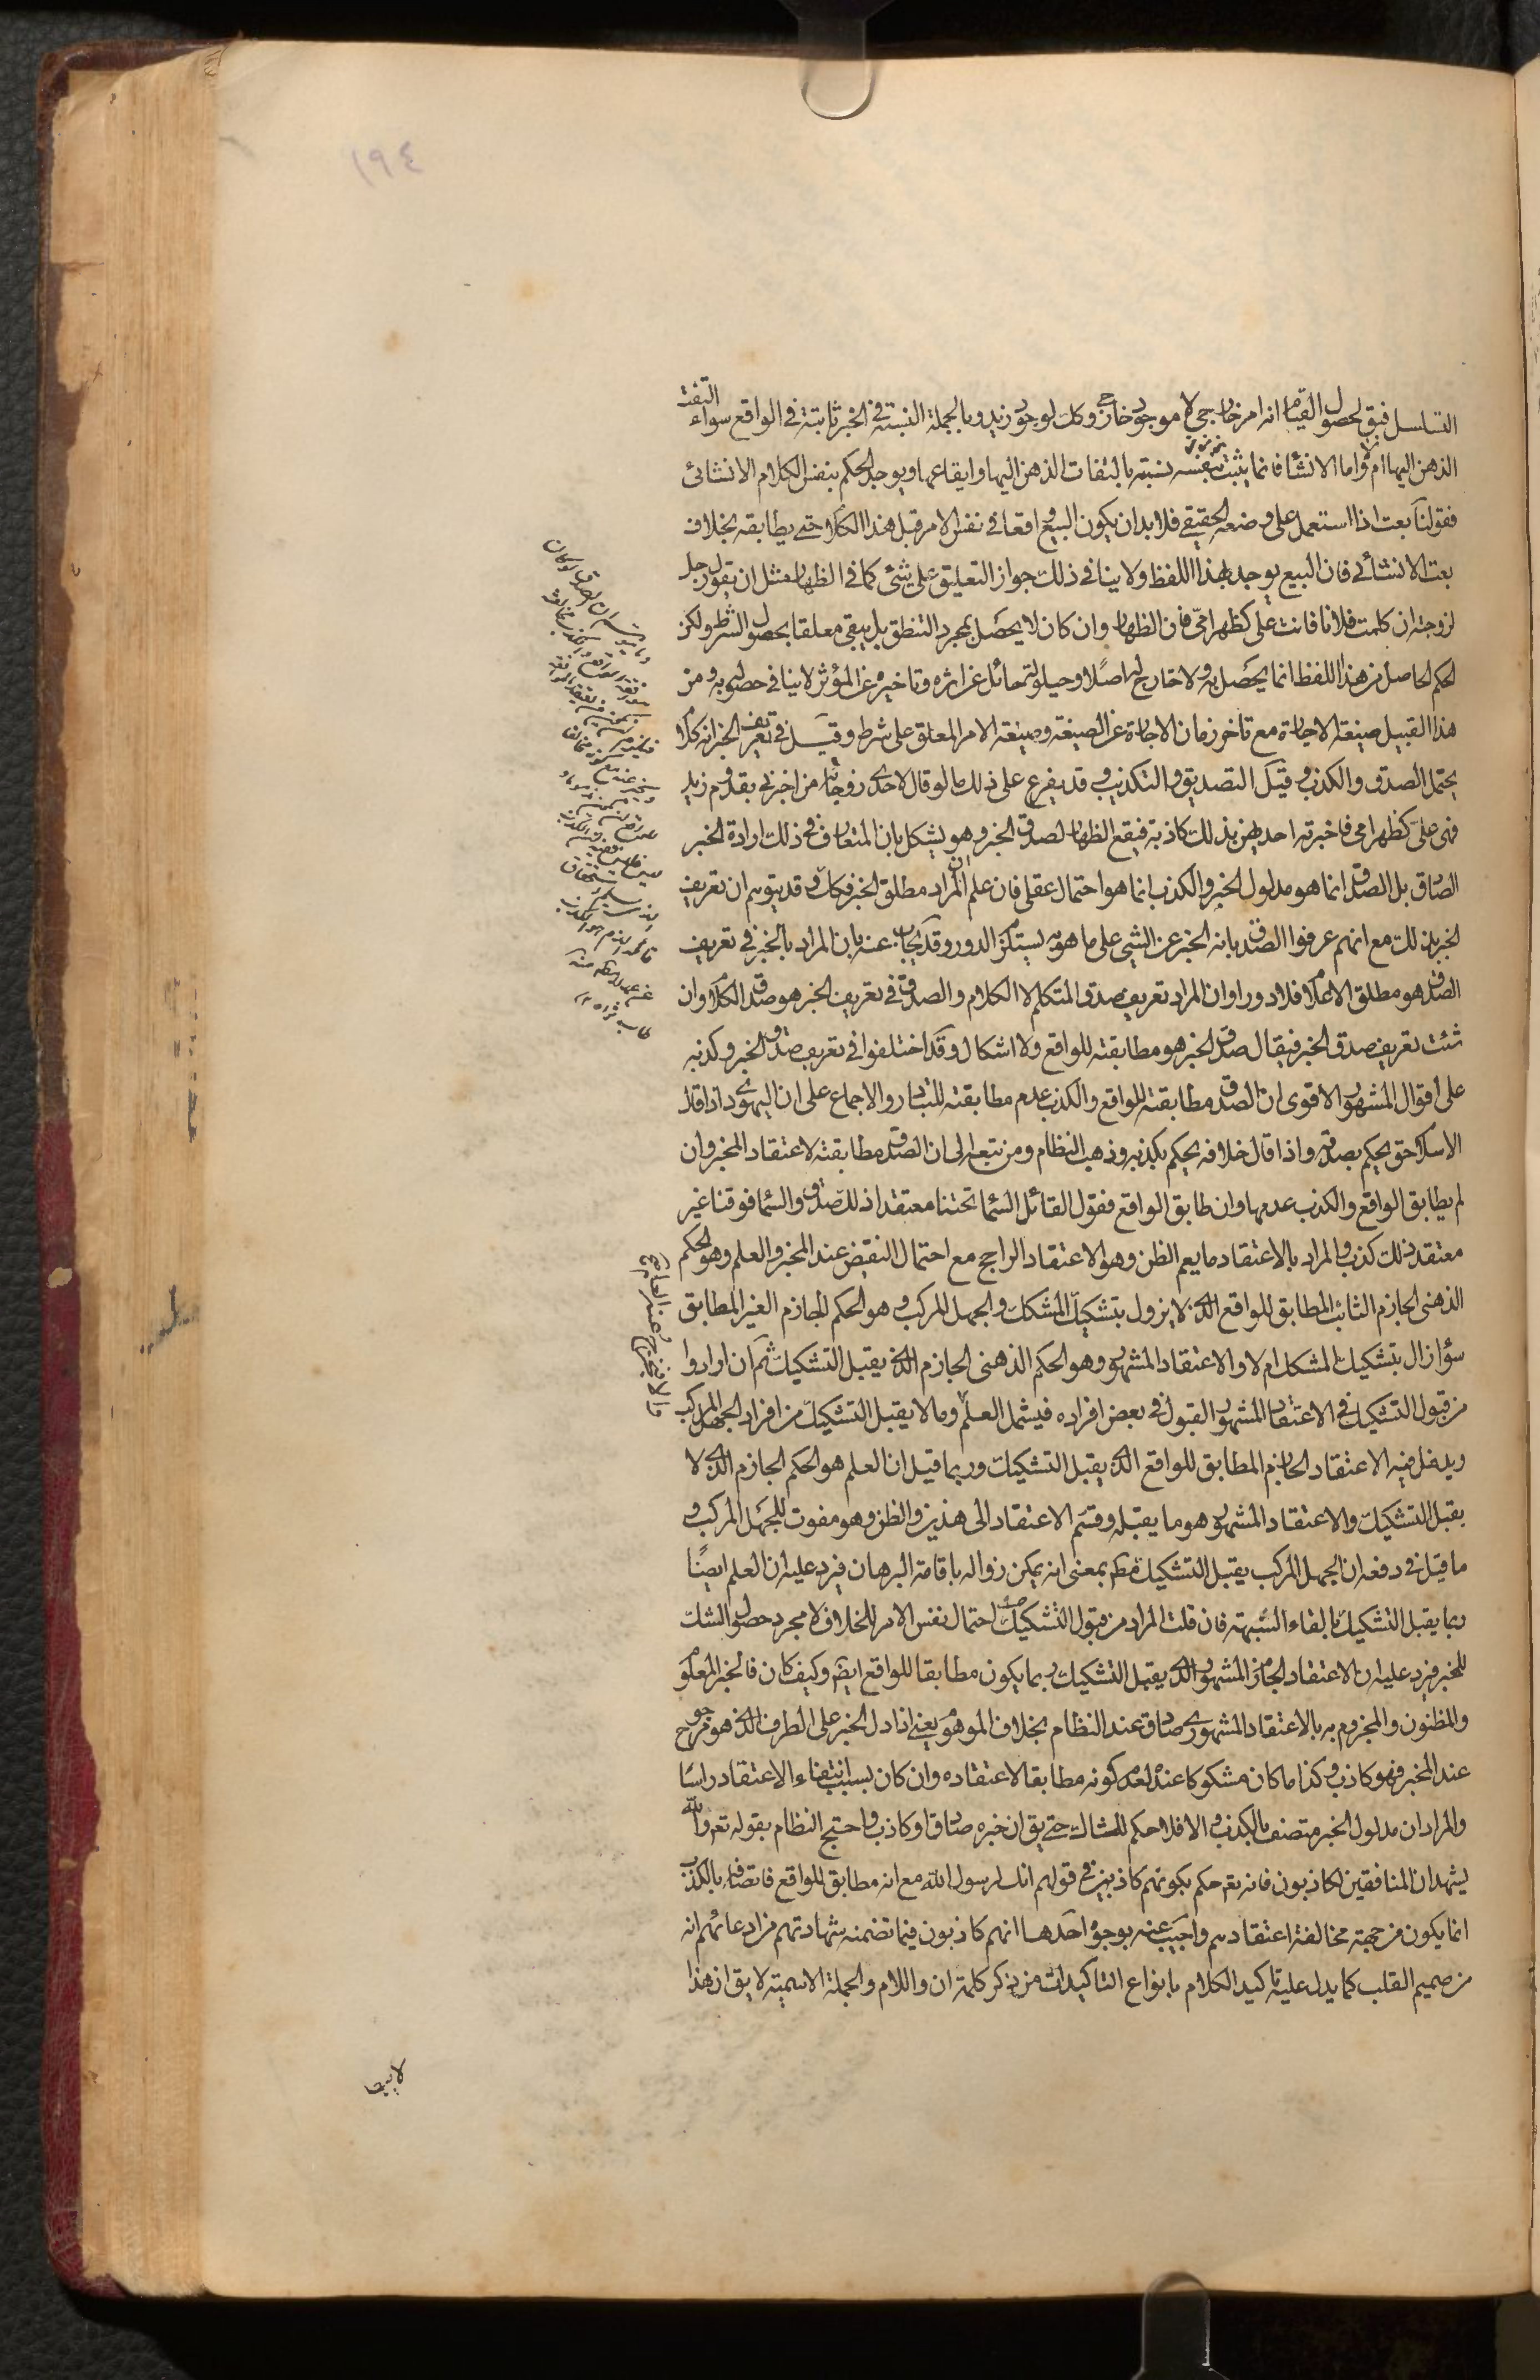 ١٩٤
التسلسل فيق لحصول القيام انه امر خارجي لا موجود خارجي وكك لوجود زيد وبالجملة النسبة في الخبر ثابتة في الواقع سواء التفت
الذهن اليها ام لا واما الانشاء فانما يثبت بنفسه نسبته بالتفات الذهن اليها وايقاعها ويوجد الحكم بنفس الكلام الانشائى
فقولنا بعت اذا استعمل على وضعه الحقيقي فلا بد ان يكون البيع واقعا في نفس الامر قبل هذا الكلام حتى يطابقه بخلاف
بعت الانشائي فان البيع يوجد بهذا اللفظ ولا ينافي ذلك جواز التعليق على شئ كما في الظهار مثل ان يقول رجل
لزوجته ان كلمت فلانا فانت على كظهر امي فان الظهار وان كان لا يحصل بمجرد التنطق بل يبقى معلقا بحصول الشرط ولكن
الحكم الحاصل من هذا اللفظ انما يحصل به ولا خارج له اصلا وحيلولة حائل عن اثره وتاخيره عن المؤثر لا ينافي حصوله به ومن
هذا القبيل صيغة الاجارة مع تاخر زمان الاجارة عن الصيغة وصيغة الامر المعلق على شرط وقيل في تعريف الخبر انه كلام
يحتمل الصدق والكذب وقيل التصديق والتكذيب وقد يفرع على ذلك ما لو قال لاحدى زوجاته من اخبرني بقدوم زيد
فهي على كظهر امي فاخبرته احديهن بذلك كاذبة فيقع الظهار لصدق الخبر وهو يشكل بان المتعارف في ذلك ارادة الخبر
الصادق بل الصدق انما هو مدلول الخبر والكذب انما هو احتمال عقلى فان علم ان المراد مطلق الخبر فكك وقد يتوهم ان تعريف
الخبر بذلك مع انهم عرفوا الصدق بانه الخبر عن الشيئ على ما هو به يستلزم الدور وقد يجاب عنه بان المراد بالخبر في تعريف
الصدق هو مطلق الاعلام فلا دور او ان المراد تعريف صدق المتكلم لا الكلام والصدق في تعريف الخبر هو صدق الكلام وان
شئت تعريف صدق الخبر فيقال صدق الخبر هو مطابقته للواقع ولا اشكال وقد اختلفوا في تعريف صدق الخبر وكذبه
على اقوال المشهور الاقوى ان الصدق مطابقته للواقع والكذب عدم مطابقته للتبادر والاجماع على ان اليهودي اذا قال
الاسلام حق يحكم بصدقه واذا قال خلافه يحكم بكذبه وذهب النظام ومن تبعه الى ان الصدق مطابقته لاعتقاد المخبر وان
لم يطابق الواقع والكذب عدمها وان طابق الواقع فقول القائل السماء تحتنا معتقدا ذلك صدق والسماء فوقنا غير
معتقد ذلك كذب والمراد بالاعتقاد ما يعم الظن وهو الاعتقاد الراجح مع احتمال النقيض عند المخبر والعلم وهو الحكم
الذهنى الجازم الثابت المطابق للواقع الذى لا يزول بتشكيك المشكك والجهل المركب وهو الحكم الجازم الغير المطابق
سواء زال بتشكيك المشكك ام لا والاعتقاد المشهور وهو الحكم الذهنى الجازم الذى يقبل التشكيك ثم ان ارادوا
من قبول التشكيك في الاعتقاد المشهور القبول في بعض افراده فيشمل العلم وما لا يقبل التشكيك من افراد الجهل المركب
ويدخل فيه الاعتقاد الجازم المطابق للواقع الذى يقبل التشكيك وربما قيل ان العلم هو الحكم الجازم الذى لا
يقبل التشكيك والاعتقاد المشهور هو ما يقبله وقسم الاعتقاد الى هذين والظن وهو مفوت للجهل المركب و
ما قيل في دفعه ان الجهل المركب يقبل التشكيك مط بمعنى انه يمكن زواله باقامة البرهان فيرد عليه ان العلم ايضا
ربما يقبل التشكيك بالقاء الشبهة فان قلت المراد من قبول التشكيك احتمال نفس الامر للخلاف لا مجرد حصول الشك
للمخبر فيرد عليه ان الاعتقاد الجازم المشهور الذى يقبل التشكيك ربما يكون مطابقا للواقع ايضا وكيف كان فالخبر المعلوم
والمظنون والمجزوم به بالاعتقاد المشهوري صادق عند النظام بخلاف الموهوم يعني اذا دل الخبر على الطرف الذى هو مرجوح
عند المخبر فهو كاذب وكذا ما كان مشكوكا عنده لعدم كونه مطابقا لاعتقاده وان كان بسبب انتفاء الاعتقاد راسا
والمراد ان مدلول الخبر متصف بالكذب والا فلا حكم للشاك حتى يق ان خبره صادق او كاذب واحتج النظام بقوله تعم والله
يشهد ان المنافقين لكاذبون فانه تعم حكم بكونهم كاذبين في قولهم انك لرسول الله مع انه مطابق للواقع فاتصافه بالكذب
انما يكون من جهة مخالفة اعتقادهم واجيب عنه بوجوه احدها انهم كاذبون فيما تضمنه شهادتهم من ادعائهم انه
من صميم القلب كما يدل عليه تاكيد الكلام بانواع التاكيدات من ذكر كلمة ان واللام والجملة الاسمية لا يق ان هذا